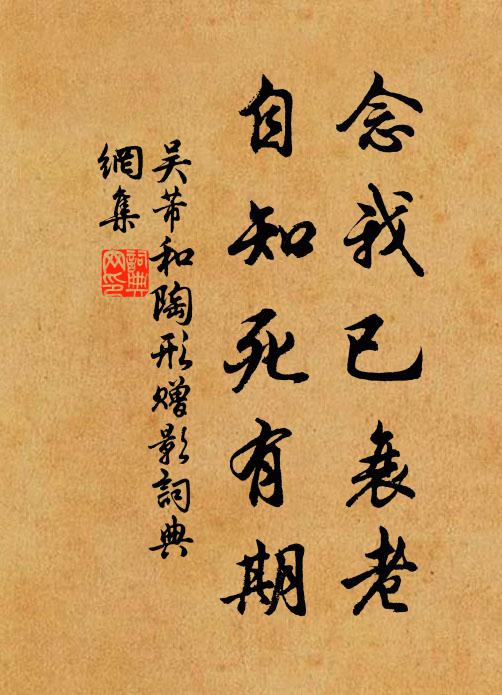 念我已衰老
自知死有期
吴芾和陶形赠影詞典
網集
詞典
网印